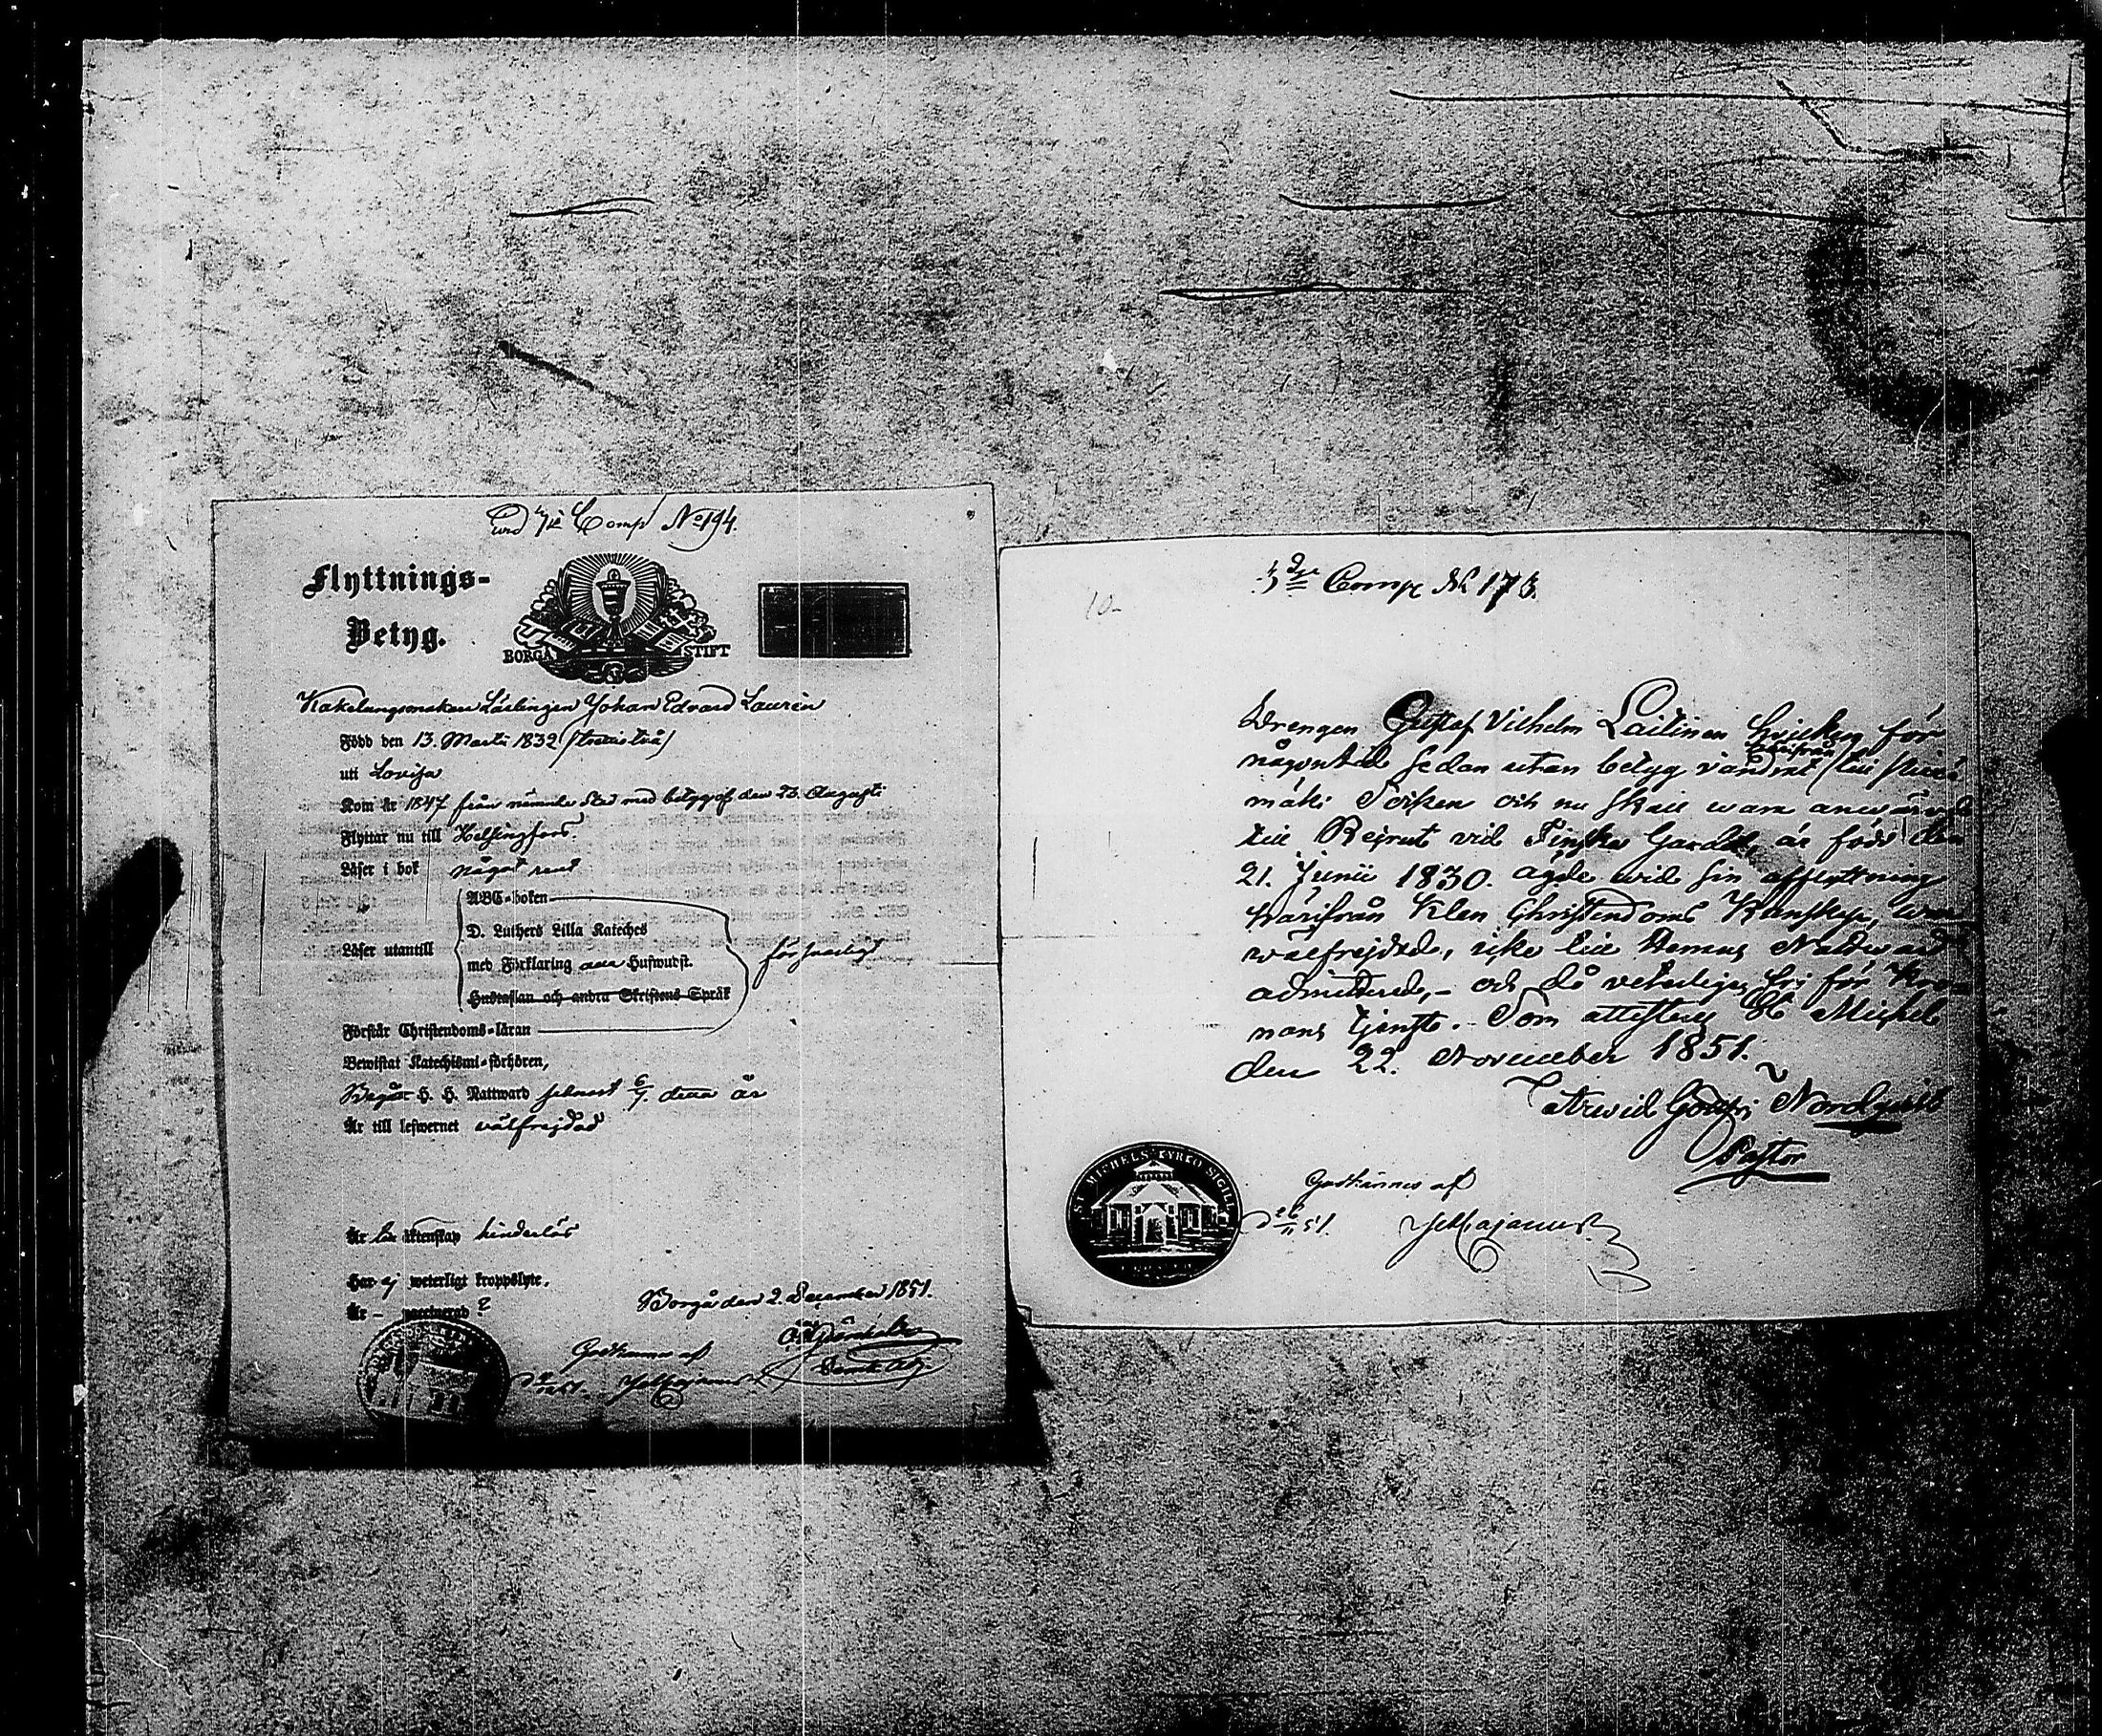 vid 4de Comp. No 194.
Flyttnings-
Betyg.
BORGÅ STIFT
Kakelungsmakare Lärlingen Johan Edvard Laurén
Född den 13. Martii 1832 (trettitvå)
uti Lovisa
Kom år 1847 från nämnde Stad med betyg af den 23. Augusti
Flyttar nu till Helsingfors.
Läser i bok något rent
ABC-boken
D. Luthers Lilla Kateches
Läser utantill
med Förklaring Hufwudst.
försvarligt
Hustaflan och andra Skriftens Språk
Förstår Christendoms-läran
Bewistat Katechismi-förhören,
Begår H. H. Nattward senast 6/7 detta år
Är till lefwernet välfrejdad
Är äktenskap hinderlös
Har ej weterligt kroppslyte.
Är - vaccinerad ?
Borgå den 2. December 1851.
Godkännes af
3dje Comp No 173.
10
Drengen Gustaf Vilhelm Laitinen hvilken för
någon tid sedan utan betyg vandrat härifrån till
mäki Socken och nu skall vara antagen
till Rekrut vid Finska Gardet, är född den
21. Junii 1830. ägde vid sin afflyttning
härifrån klen Christendoms Kunskap, war
wälfrejdad, icke till Herrans Nattward
admitterad, - och då veterligen fri för Kro-
nans tjenst. Som attesteras St Michel
den 22. November 1851.
Arwid Nordqvist
Pastor
ST MICHELS KYRKO SIGILL
Godkännes af